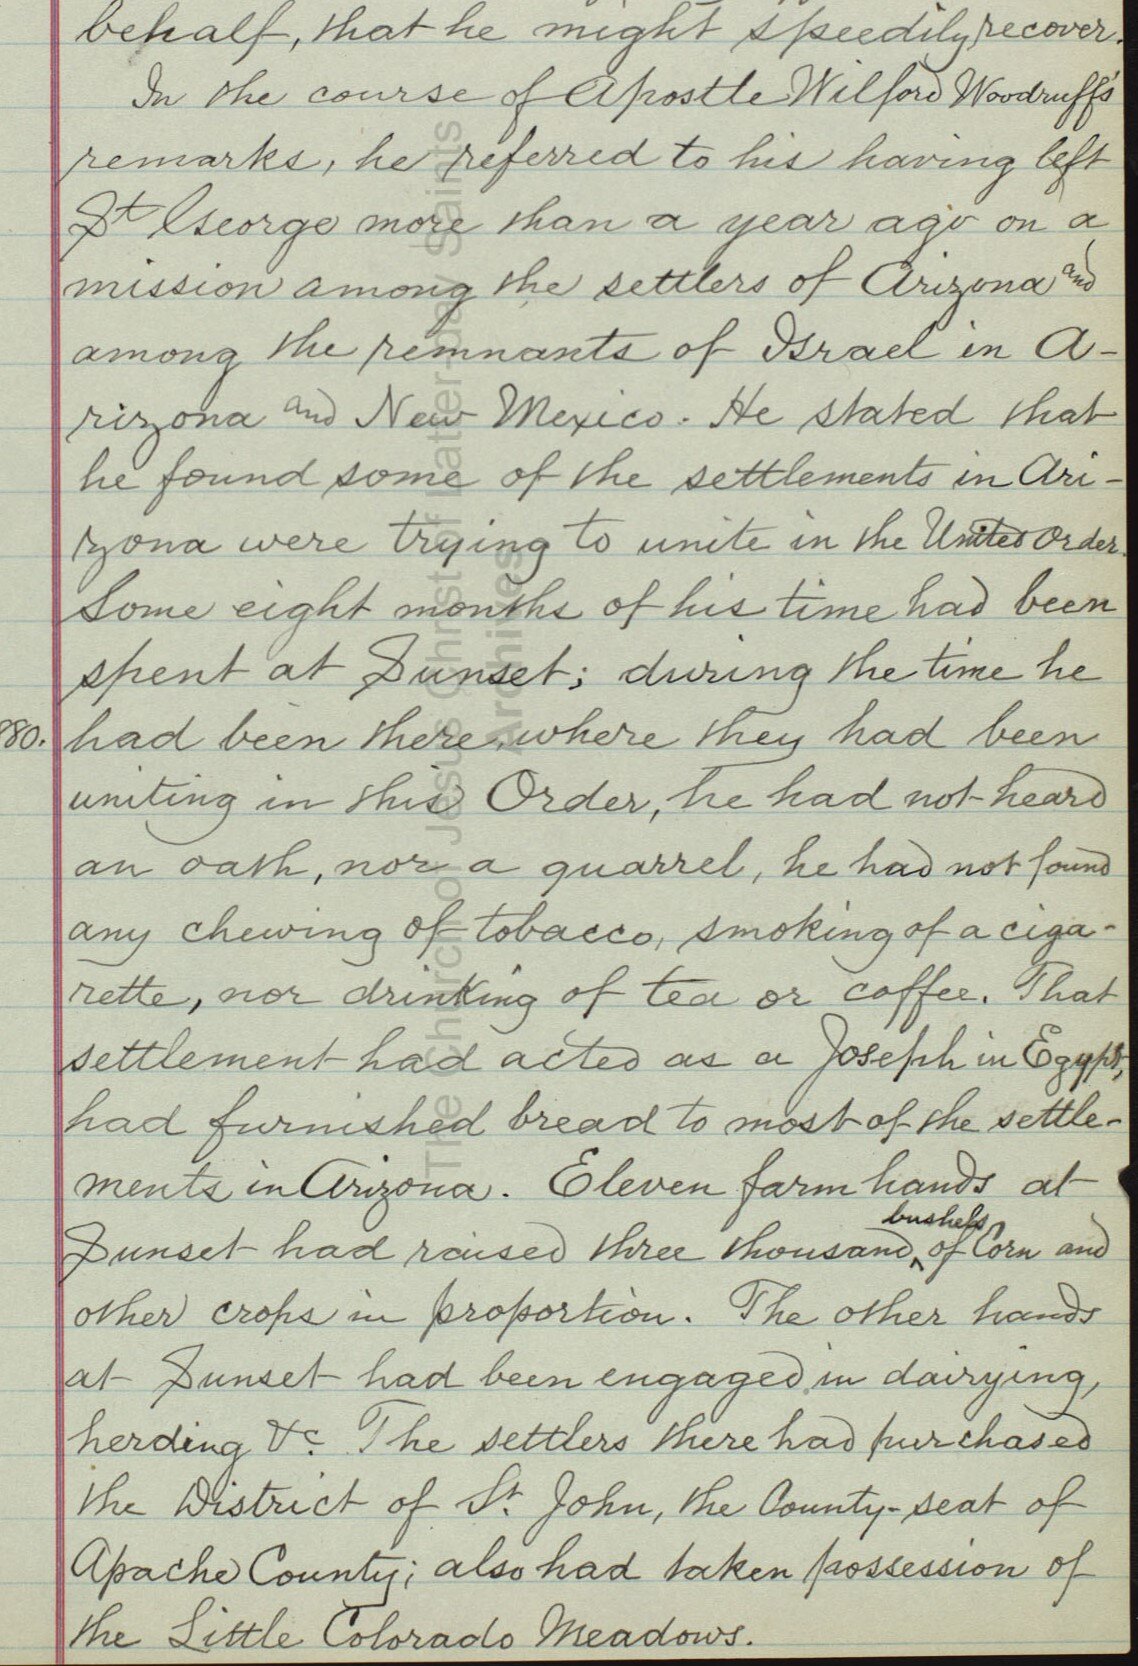 behalf, that he might speedily recover.
In the course of Apostle Wilford Woodruff's
remarks, he referred to his having left
St George more than a year ago on a
mission among the settlers of Arizona and
among the remnants of Israel in A-
rizona and New Mexico. He stated that
he found some of the settlements in Ari-
zona were trying to unite in the United Order.
Some eight months of his time had been
spent at Sunset; during the time he
880.
had been there, where they had been
uniting in this Order, he had not heard
an oath, nor a quarrel, he had not found
any chewing of tobacco, smoking of a ciga-
rette, nor drinking of tea or coffee. That
settlement had acted as a Joseph in Egypt,
had furnished bread to most of the settle-
ments in Arizona. Eleven farm hands at
Sunset had raised three thousand ^bushels of Corn and
other crops in proportion. The other hands
at Sunset had been engaged in dairying,
herding &c. The settlers there had purchased
the District of St. John, the County-seat of
Apache County; also had taken possession of
the Little Colorado Meadows.
The Church of Jesus Christ of Latter-day Saints
Archives